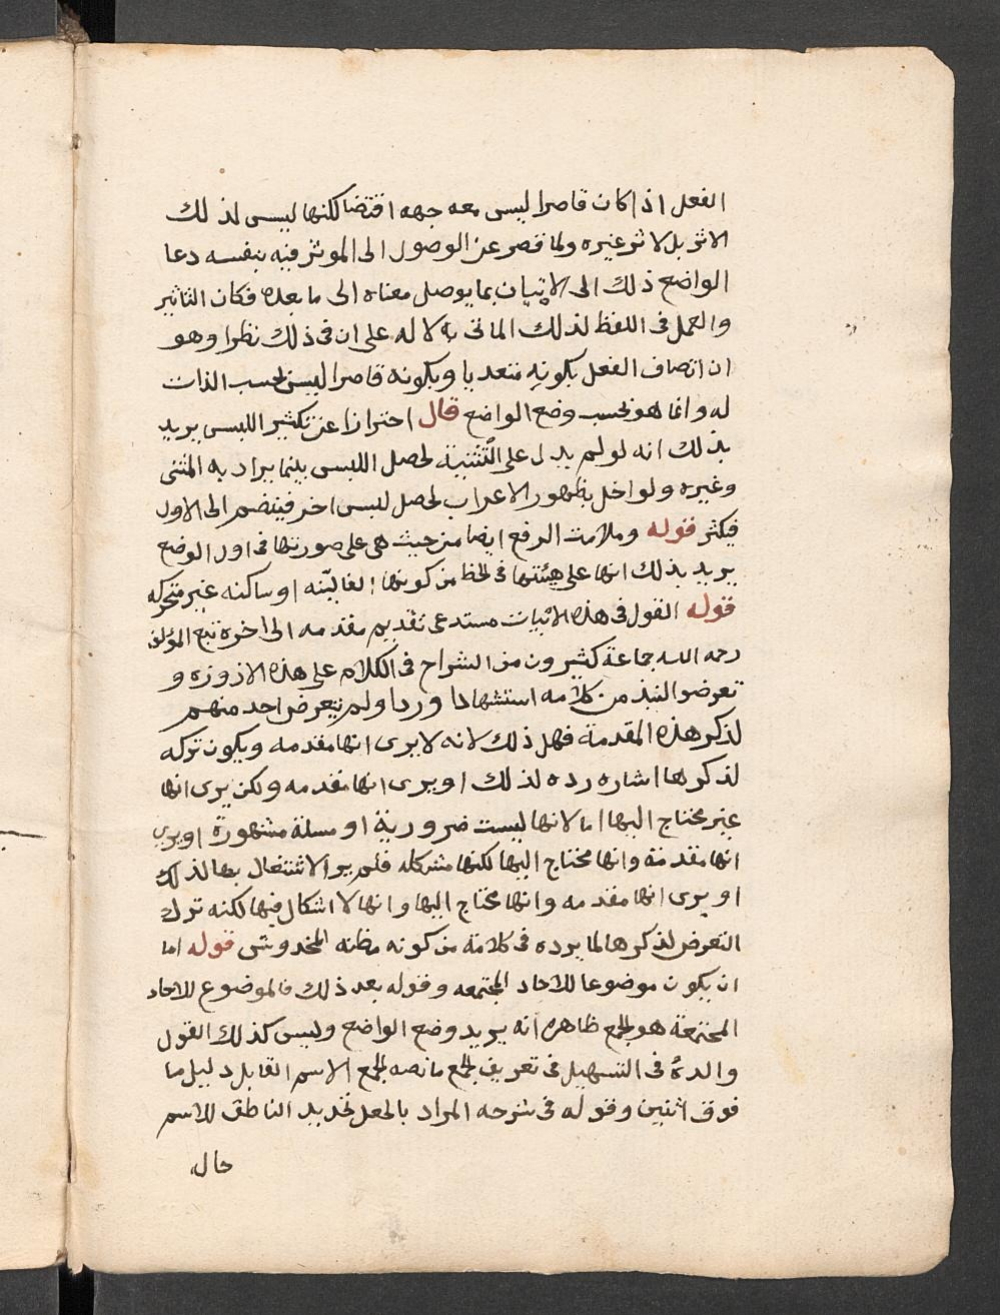 الفعل اذا كان قاصرا ليس معه جهه اقتضا لكنها ليس لذلك
الاثر بل لاثر غيره ولما قصر عن الوصول الى الموثر فيه بنفسه دعا
الواضع ذلك الى الاتيان بما يوصل معناه الى ما بعده فكان التاثير
والعمل فى اللفظ لذلك الماتى به لا له على ان فى ذلك نظرا وهو
ان اتصاف الفعل بكونه متعديا وبكونه قاصرا ليس بحسب الذات
له وانما هو بحسب وضع الواضع قال احترازا عن تكثير اللبس يريد
بذلك انه لو لم يدل على التثنية لحصل اللبس بينما يراد به المثنى
وغيره ولو اخل بظهور الاعراب لحصل لبس اخر فينضم الى الاول
فيكثر قوله وعلامت الرفع ايضا من حيث هى على صورتها فى اول الوضع
يريد بذلك انها على هيئتها فى لحظ من كونها الفا ليّنه او ساكنه غير متحركه
قوله القول فى هذه الابيات مستدعى تقديم مقدمه الى اخره تبع المؤلف
رحمه الله جماعة كثيرون من الشراح فى الكلام على هذه الارجوزه و
تعرضوا لنبذ من كلامه استشهادا وردا ولم يتعرض احد منهم
لذكر هذه المقدمة فهل ذلك لانه لا يرى انها مقدمه ويكون تركه
لذكرها اشاره رده لذلك او يرى انها مقدمه ولكن يرى انها
غير محتاج اليها اما لانها ليست ضرورية او مسلة مشهورة او يرى
انها مقدمة وانها محتاج اليها لكنها مشكله فلم ير الاشتغال بها لذلك
او يرى انها مقدمه وانها محتاج اليها وانها لا اشكال فيها لكنه ترك
التعرض لذكرها لما يرده فى كلامة من كونه مظنه المخدوش قوله اما
ان يكون موضوعا للاحاد المجتمعه وقوله بعد ذلك فالموضوع للاحاد
المجتمعة هو الجمع ظاهره انه يريد وضع الواضع وليس كذلك القول
والدهُ فى التسهيل فى تعريف الجمع ما نصه الجمع الاسم القابل دليل ما
فوق اثنين وقوله فى شرحه المراد بالجعل تجديد الناطق للاسم
حال